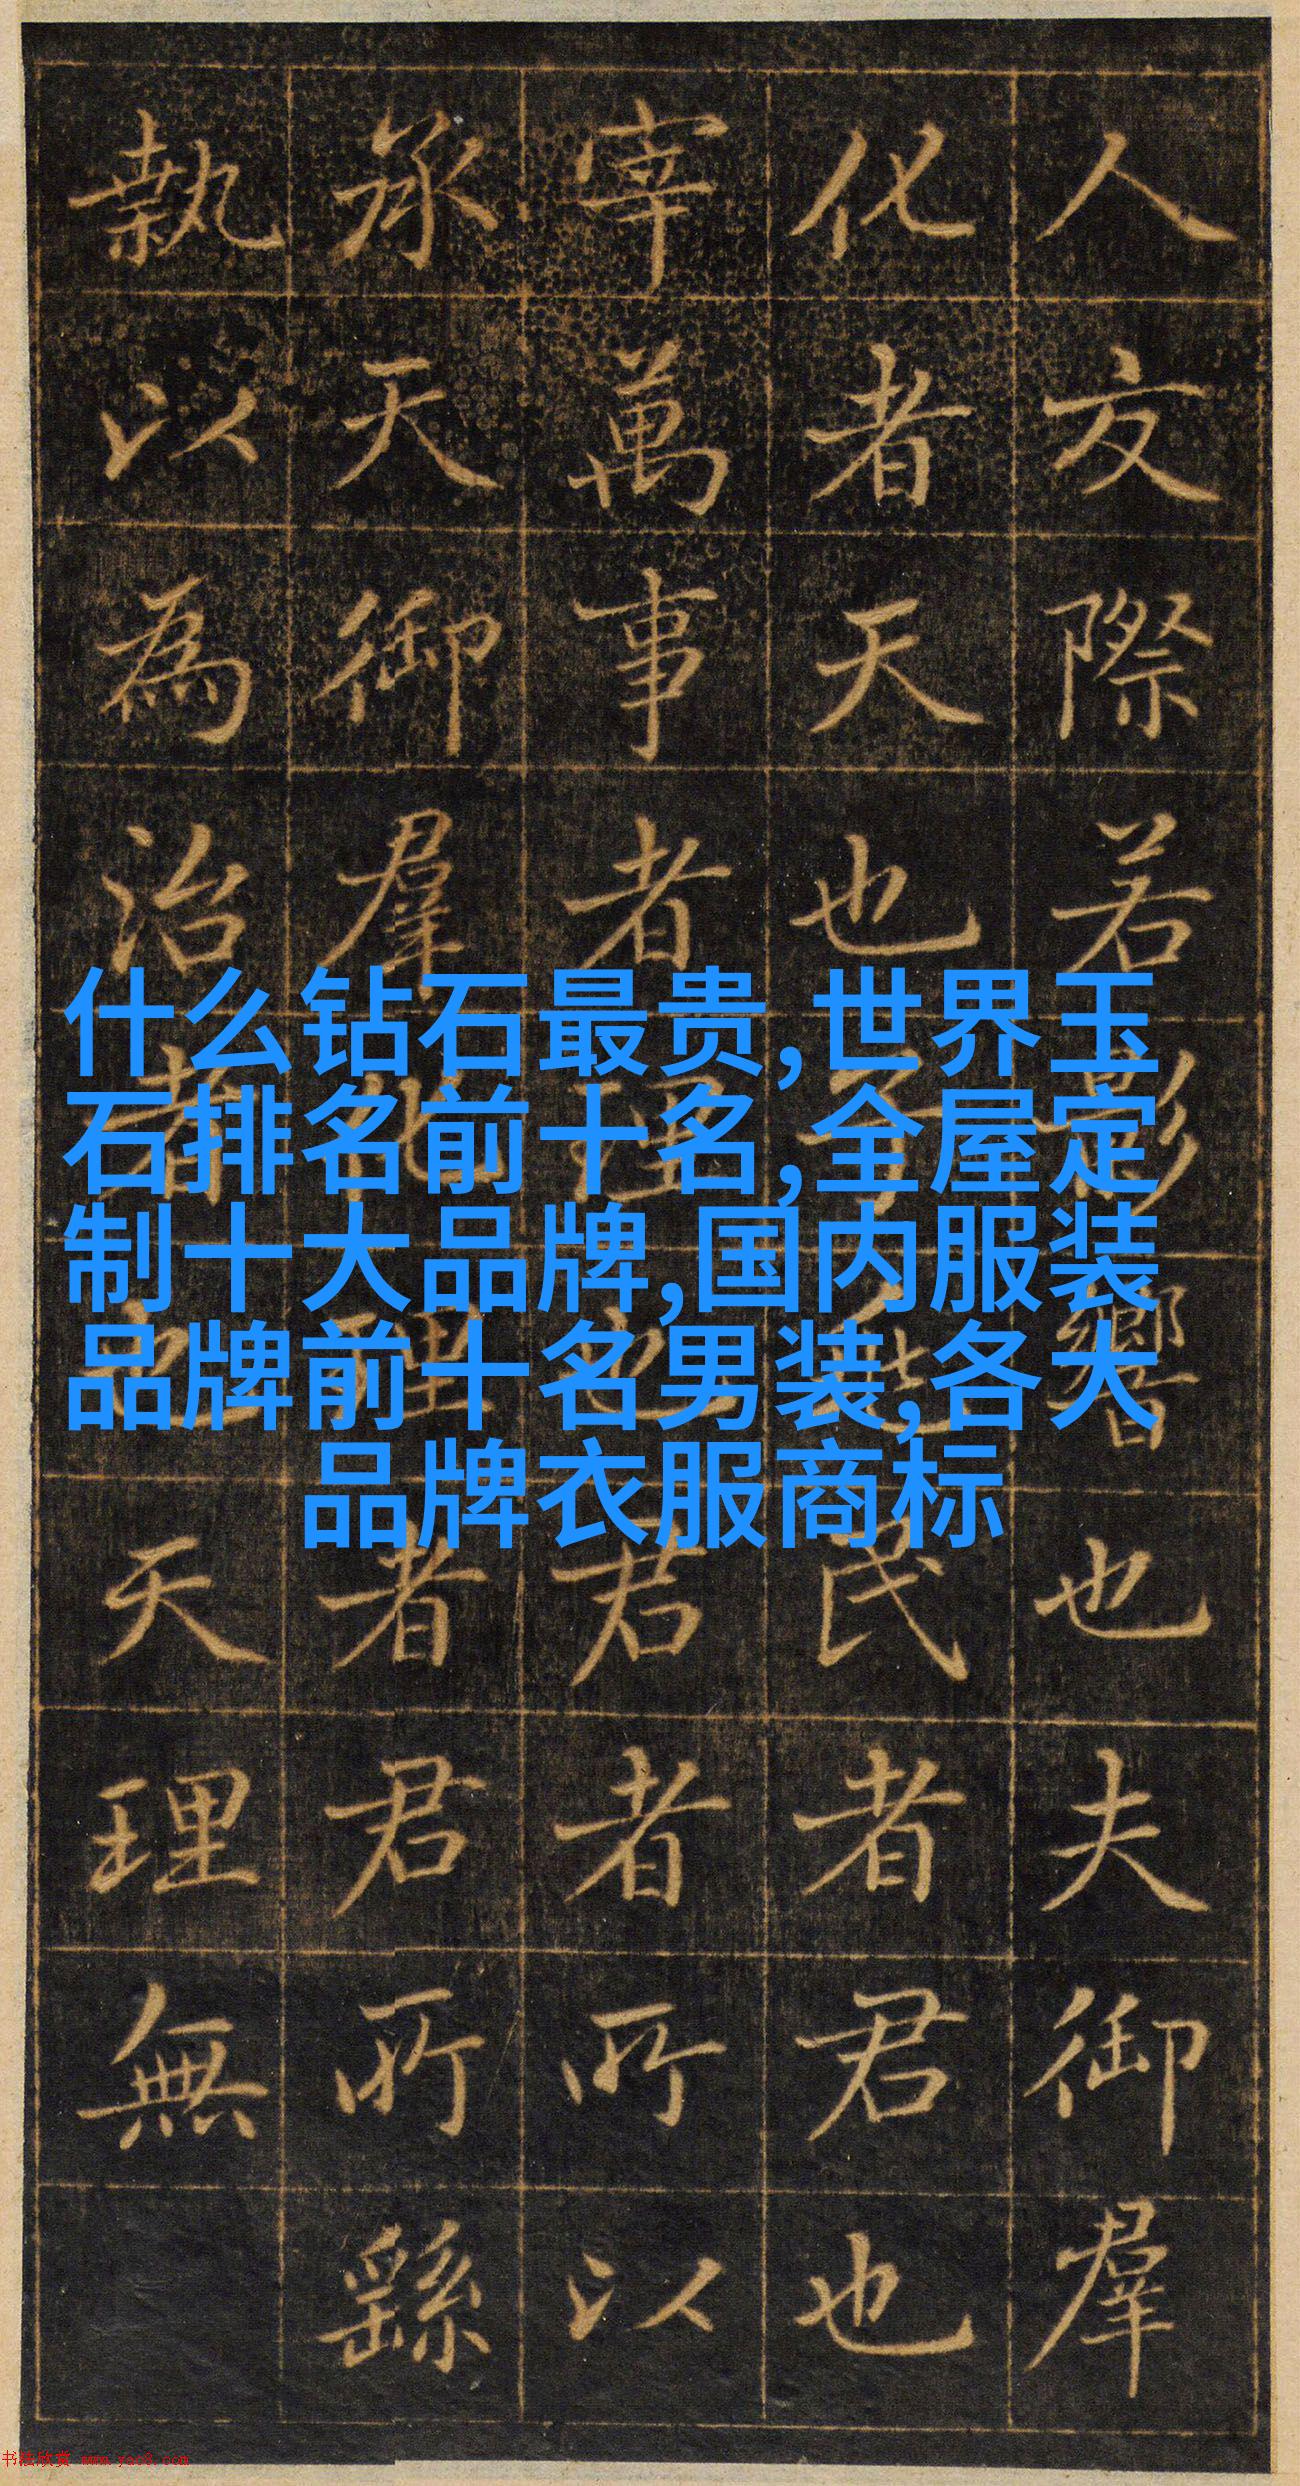 人交際若影響也夫御羣
化者天也子民者君也
宰萬事者理也君者所以
承天御羣化理者君所繇
執以為治者也天理無
什么钻石最贵,世界玉
石排名前十名,全屋定
制十大品牌,国内服装
品牌前十名男装,各大
品牌衣服商标
书法欣赏 www.yac8.com